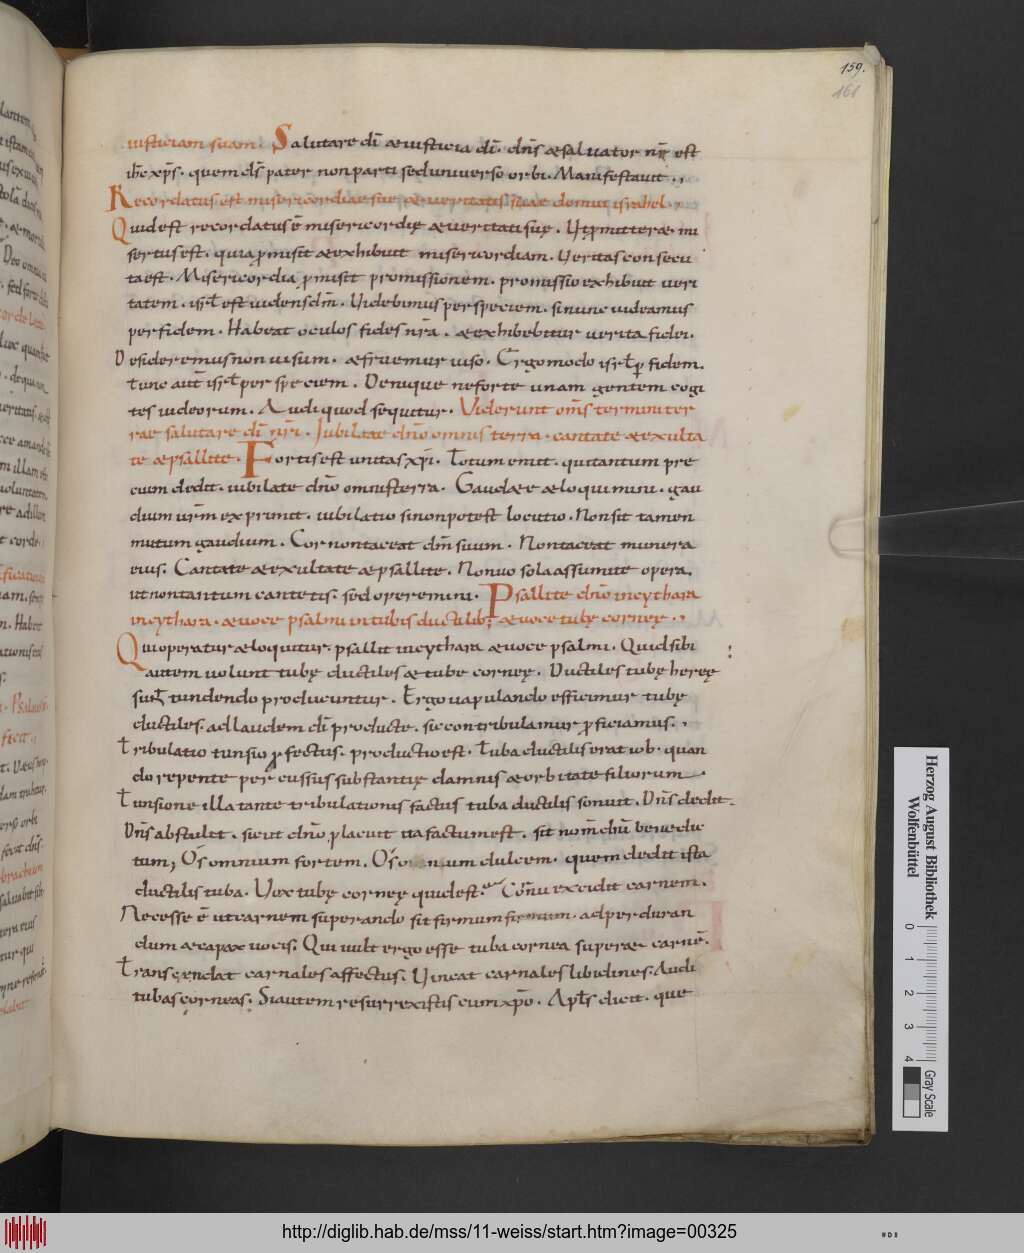 159.
161
iusticiam suam. Salutare dī & iusticia dī. dn̄s & saluator nr̄ est
ih̄c xp̄s. quem dn̄s pater non parti sed uniuerso orbi. Manifestauit.,
Recordatus est misericordiae suę & ueritatis suae domui israhel.,
Quid est recordatus ē misericordię & ueritati suę. Ut promitteret mi
sertus est. quia promisit & exhibuit misericordiam. Ueritas consecu
ta est. Misericordia promisit promissionem. promissio exhibuit ueri
tatem. isrł est uidens dm̄. Uidebimus per speciem. si nunc uideamus
per fidem. Habeat oculos fides nr̄a. & exhibebitur uerita fidei.
Desideremus non uisum. & fruemur uiso. Ergo modo isrł p fidem.
Tunc aut̄ isrł per speciem. Denique ne forte unam gentem cogi
tes iudeorum. Audi quod sequitur. Viderunt om̄s termini ter
rae salutare dī nr̄i. Iubilate dn̄o omnis terra. cantate & exulta
te & psallite. Fortis est unitas xp̄i. Totum emit. qui tantum pre
cium dedit. iubilate dn̄o omnis terra. Gaudete & loquimini. gau
dium ur̄m exprimit. iubilatio si non potest locutio. Non sit tamen
mutum gaudium. Cor non taceat dm̄ suum. Non taceat munera
eius. Cantate & exultate & psallite. Non uo sola assumite opera.
ut non tantum cantetis; sed operemini. Psallite dn̄o in cythara
in cythara. & uoce psalmi in tubis ductilib; & uoce tubę corneę.,
Qui operatur & loquitur. psallit in cythara & uoce psalmi. Quid sibi
autem uolunt tubę ductiles & tube corneę. Ductiles tubę hereę
sunt. tundendo producuntur. Ergo uapulando efficimur tubę
ductiles. ad laudem dī producte. sic contribulamur proficiamus.,
Tribulatio tunsio profectus. productio est. Tuba ductilis erat iob. quan
do repente percussus substantię damnis & orbitate filiorum.
Tunsione illa tante tribulationis factus tuba ductilis sonuit. Dn̄s dedit.
Dn̄s abstulit. sicut dn̄o placuit ita factum est. sit nom̄ dn̄i benedic
tum; O sonum fortem. O sonum dulcem. quem dedit ista
ductilis tuba. Vox tubę corneę quid est. Cornu excidit carnem.
Necesse ē ut carnem superando sit firmum firmum. ad perduran
dum & capax uocis. Qui uult ergo esse tuba cornea superet carnē.
Transcendat carnales affectus. Uincat carnales libidines. Audi
tubas corneas. Si autem resurrexistis cum xp̄o. Apłs dicit. que
Herzog August Bibliothek
Wolfenbüttel
0 1 2 3 4
Gray Scale
http://diglib.hab.de/mss/11-weiss/start.htm?image=00325